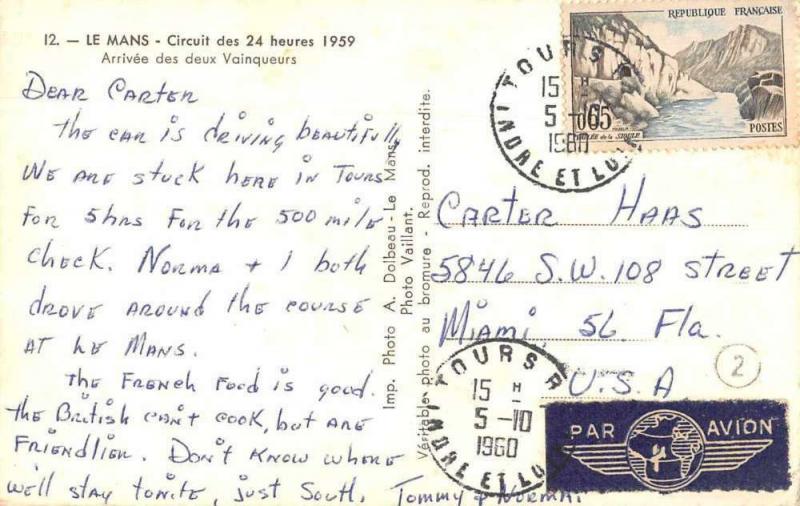 12. — LE MANS - Circuit des 24 heures 1959
Arrivée des deux Vainqueurs
DEAR CARTER
THE CAR IS DRIVING BEAUTIFULLY
WE ARE STUCK HERE IN TOURS
FOR 5 HRS FOR THE 500 MILE
CHECK. NORMA + I BOTH
DROVE AROUND THE COURSE
AT LE MANS.
THE FRENCH FOOD IS GOOD.
THE BRITISH CAN'T COOK, BUT ARE
FRIENDLIER. DON'T KNOW WHERE
WE'LL STAY TONITE, JUST SOUTH. TOMMY & NORMA
Imp. Photo A. Dolbeau - Le Mans
Photo Vaillant.
Véritables photo au bromure - Reprod. interdite.
RÉPUBLIQUE FRANÇAISE
0,65
VALLÉE de la SIOULE
POSTES
TOURS
15 H
5
1960
INDRE ET LOIRE
CARTER HAAS
5846 S.W. 108 STREET
MIAMI, 56, FLA.
U.S.A
2
TOURS R
15 H
5-10
1960
INDRE ET LOIRE
PAR AVION